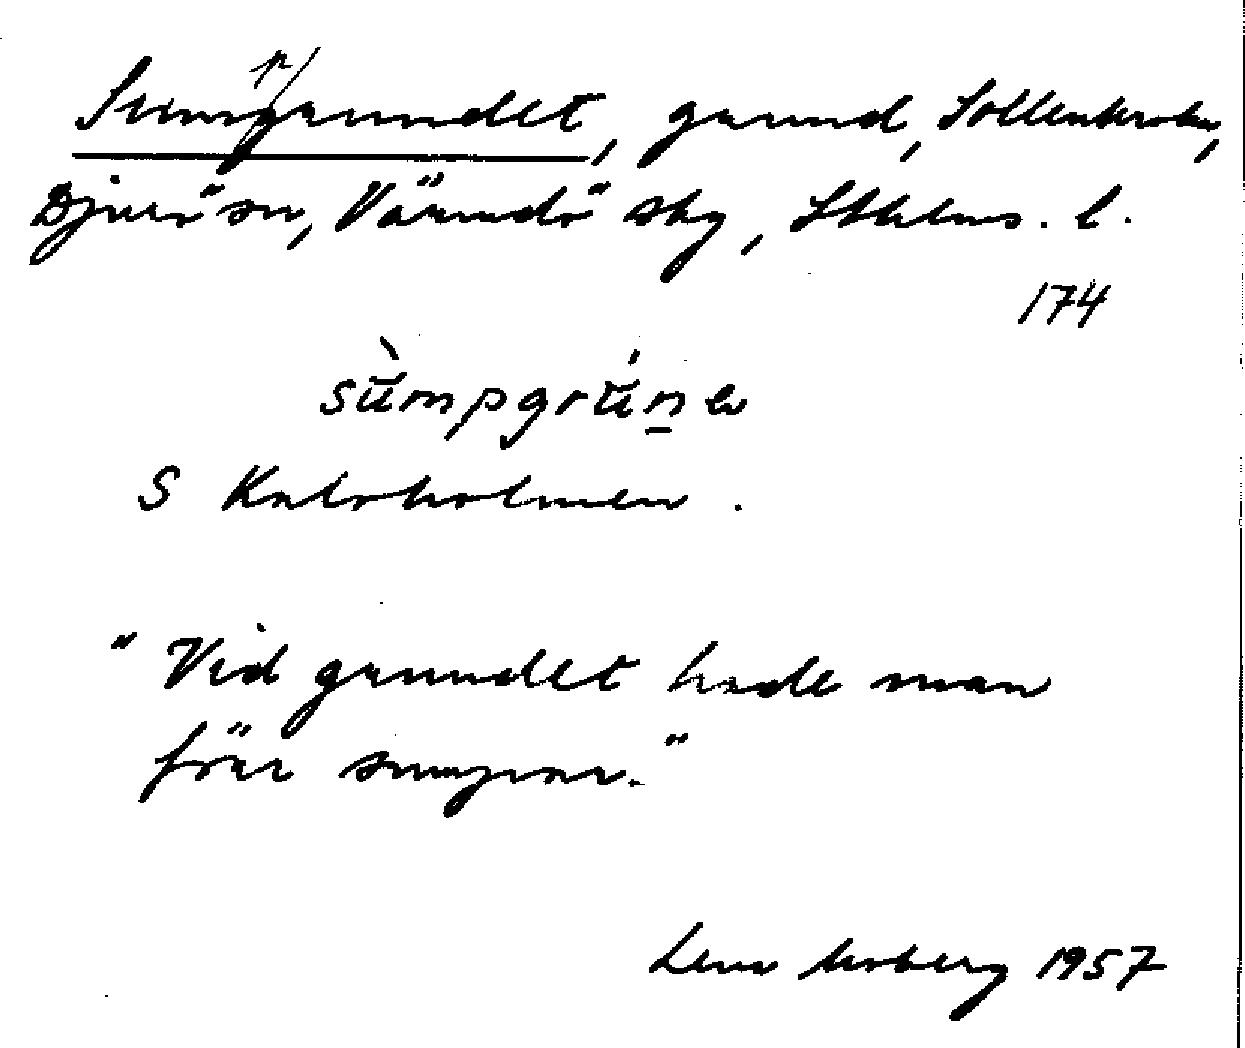 Sumpgrundet, grund, Sollenkroka,
Djurö sn, Värmdö skg, Sthlms. l.
174
sùmpgrún̲
S Kalvholmen.
"Vid grundet hade man
förr sumpar."
Lena Moberg 1957